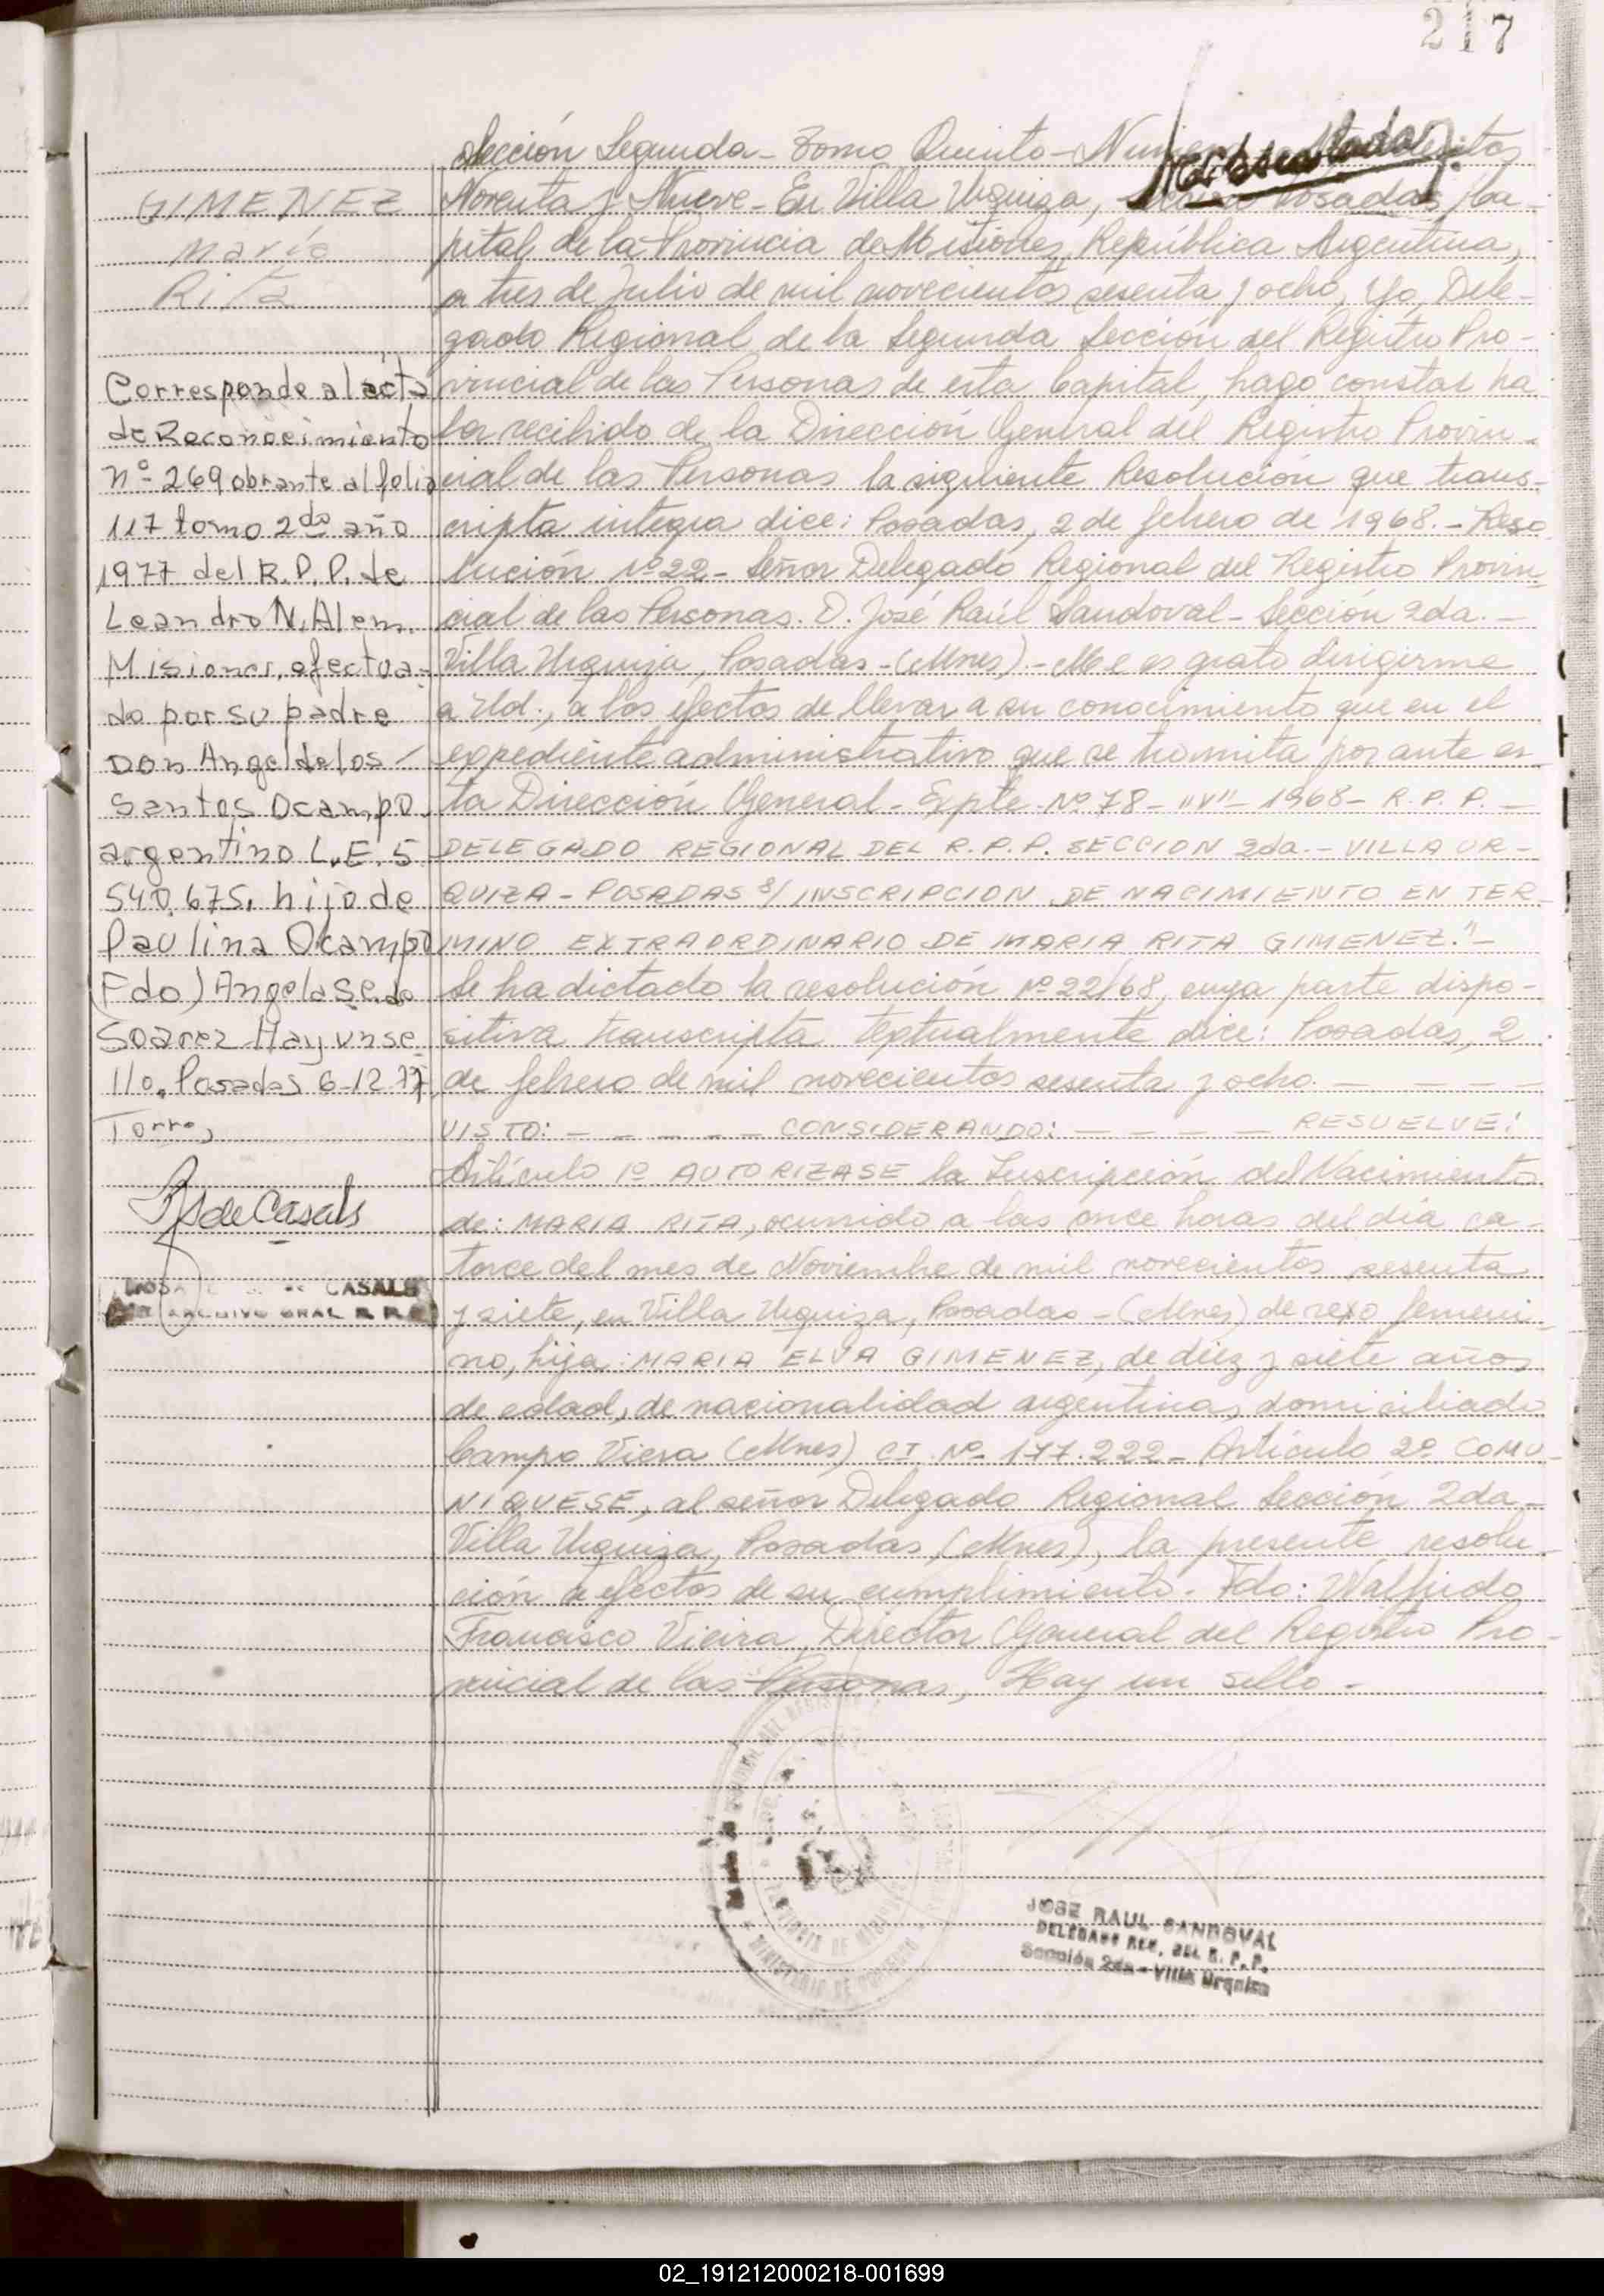 217
Sección Segunda - Tomo Quinto - Número
Noventa y Nueve - En Villa Urquiza, Posadas, Ca-
pital de la Provincia de Misiones, República Argentina,
a tres de Julio de mil novecientos sesenta y ocho, Yo, Dele-
gado Regional de la Segunda Sección del Registro Pro-
vincial de las Personas de esta Capital, hago constar ha
ber recibido de la Dirección General del Registro Provin-
cial de las Personas la siguiente Resolución que trans-
cripta integra dice: Posadas, 2 de febrero de 1968. - Reso
lución Nº 22 - Señor Delegado Regional del Registro Provin-
cial de las Personas. D. José Raúl Sandoval - Sección 2da. -
Villa Urquiza, Posadas - (Mnes) - Me es grato dirigirme
a Ud., a los efectos de llevar a su conocimiento que en el
expediente administrativo que se tramita por ante es-
ta Dirección General - Expte. Nº 78 - "V" - 1968 - R. P. P. -
DELEGADO REGIONAL DEL R. P. P. SECCION 2da. - VILLA UR-
QUIZA - POSADAS S/ INSCRIPCION DE NACIMIENTO EN TER-
MINO EXTRAORDINARIO DE MARIA RITA GIMENEZ." -
Se ha dictado la resolución Nº 22/68, cuya parte dispo-
sitiva transcripta textualmente dice: Posadas, 2
de febrero de mil novecientos sesenta y ocho. - - - -
VISTO: - - - - - CONSIDERANDO: - - - - RESUELVE:
Artículo 1º AUTORIZASE la Inscripción del Nacimiento
de: MARIA RITA, ocurrido a las once horas del día ca-
torce del mes de Noviembre de mil novecientos sesenta
y siete, en Villa Urquiza, Posadas - (Mnes) de sexo femeni-
no, hija: MARIA ELVA GIMENEZ, de diez y siete años
de edad, de nacionalidad argentina, domiciliada
Campo Viera (Mnes) C.I. Nº 177.222 - Artículo 2º COMU-
NIQUESE, al señor Delegado Regional Sección 2da -
Villa Urquiza, Posadas, (Mnes), la presente resolu-
ción a efectos de su cumplimiento. Fdo: Walfrido
Francisco Vieira, Director General del Registro Pro-
vincial de las Personas, Hay un sello -
GIMENEZ
María
Rita
Corresponde al acta
de Reconocimiento
nº 269 obrante al folio
117 tomo 2do año
1977 del R.P.P. de
Leandro N. Alem.
Misiones, efectua-
do por su padre
Don Angel de los
Santos Ocampo.
argentino L.E. 5
540.675. hijo de
Paulina Ocampo
(Fdo) Angela S. de
Soarez Hay un se
llo. Posadas 6-12-77
Torres
de Casals
CASALS
ARCHIVO GRAL R P P
MINISTERIO DE GOBIERNO
JOSE RAUL SANDOVAL
DELEGADO REG. DEL R. P. P.
Sección 2da - Villa Urquiza
02_191212000218-001699